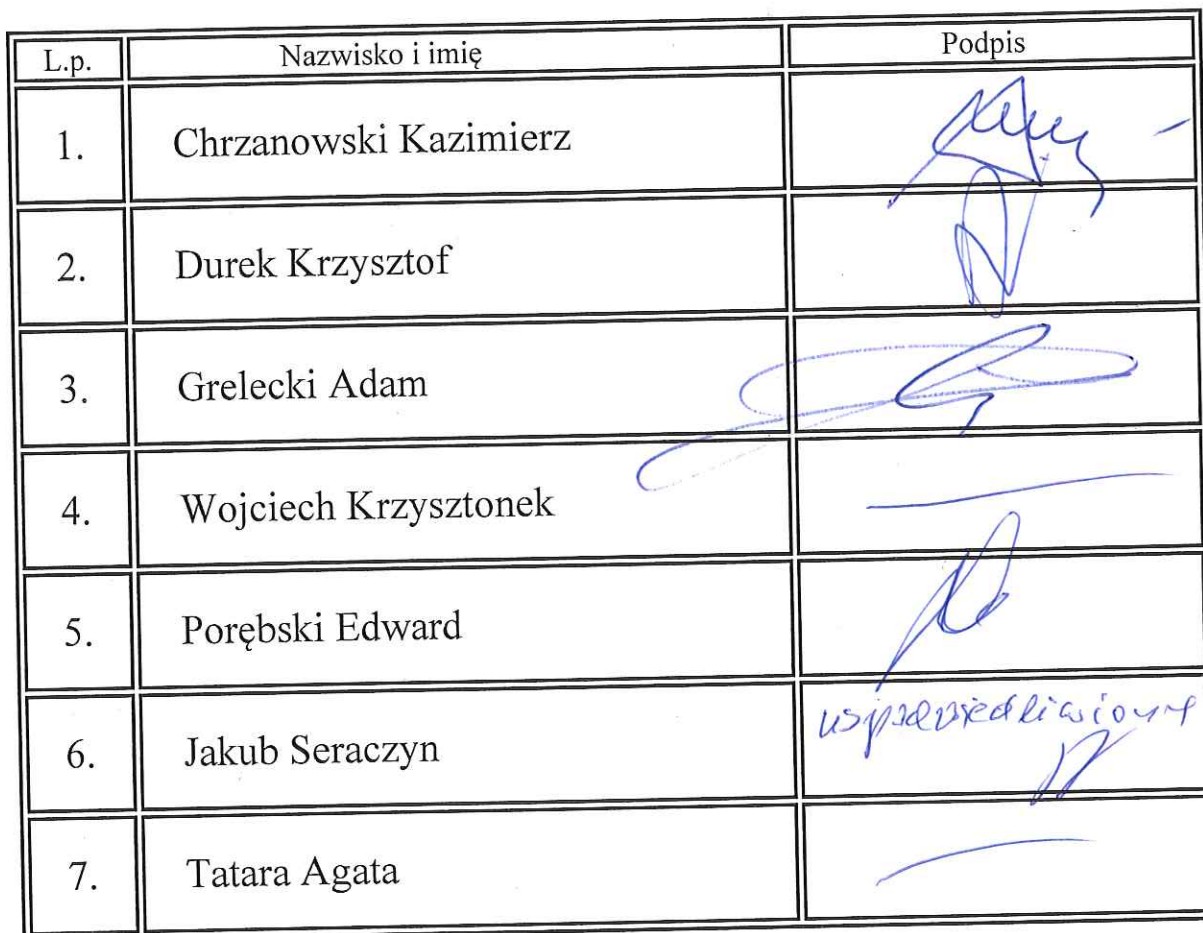 L.p. Nazwisko i imię Podpis
1. Chrzanowski Kazimierz
2. Durek Krzysztof
3. Grelecki Adam
4. Wojciech Krzysztonek
5. Porębski Edward
6. Jakub Seraczyn usprawiedliwiony
7. Tatara Agata